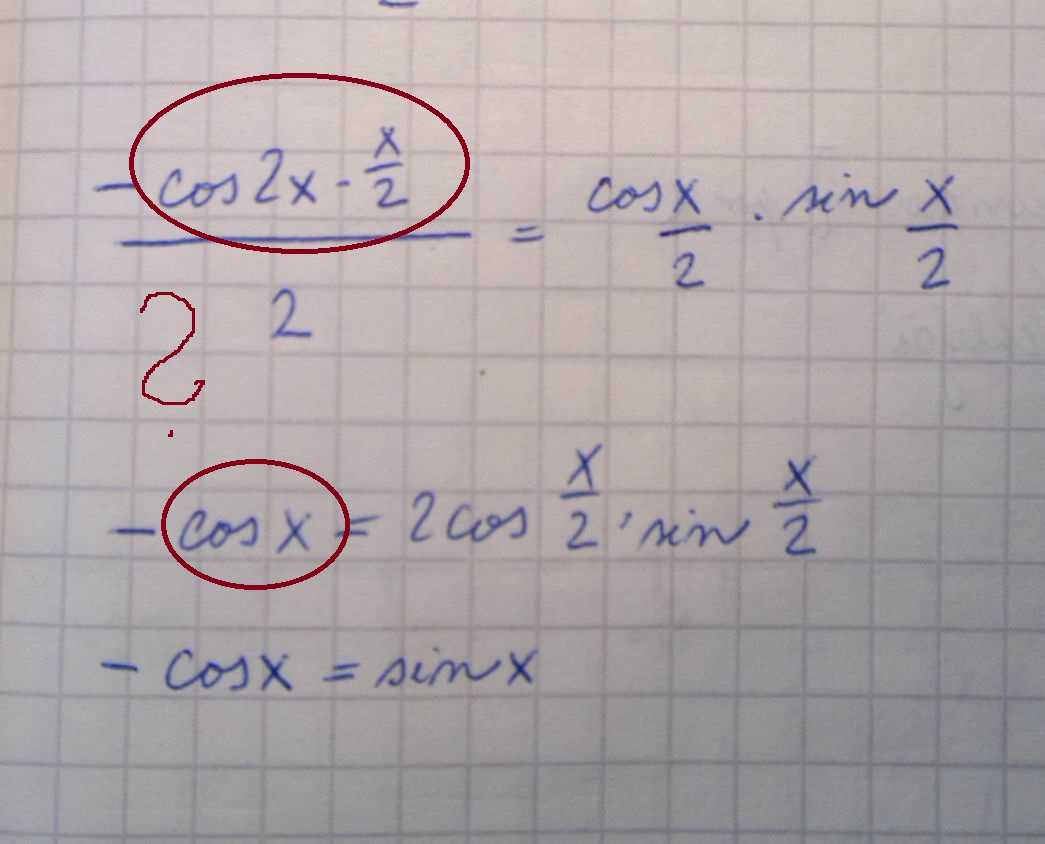 - cos 2x · x/2 / 2 = cos x/2 · sin x/2
?
- cos x = 2 cos x/2 · sin x/2
- cos x = sin x